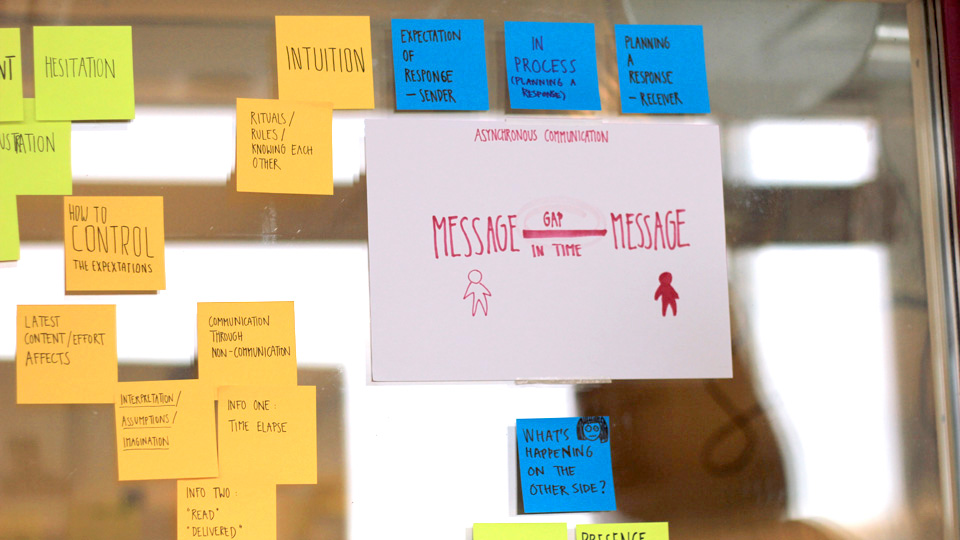 NT
HESITATION
INTUITION
EXPECTATION
OF
RESPONSE
— SENDER
IN
PROCESS
(PLANNING A
RESPONSE)
PLANNING
A
RESPONSE
— RECEIVER
USTRATION
RITUALS/
RULES/
KNOWING EACH
OTHER
ASYNCHRONOUS COMMUNICATION
MESSAGE GAP MESSAGE
IN TIME
HOW TO
CONTROL
THE EXPEXTATIONS
LATEST
CONTENT/EFFORT
AFFECTS
COMMUNICATION
THROUGH
NON-COMMUNICATION
INTERPRETATION/
ASSUMPTIONS/
IMAGINATION
INFO ONE:
TIME ELAPSE
INFO TWO:
"READ"
"DELIVERED"
WHAT'S
HAPPENING
ON THE
OTHER SIDE?
PRESENCE